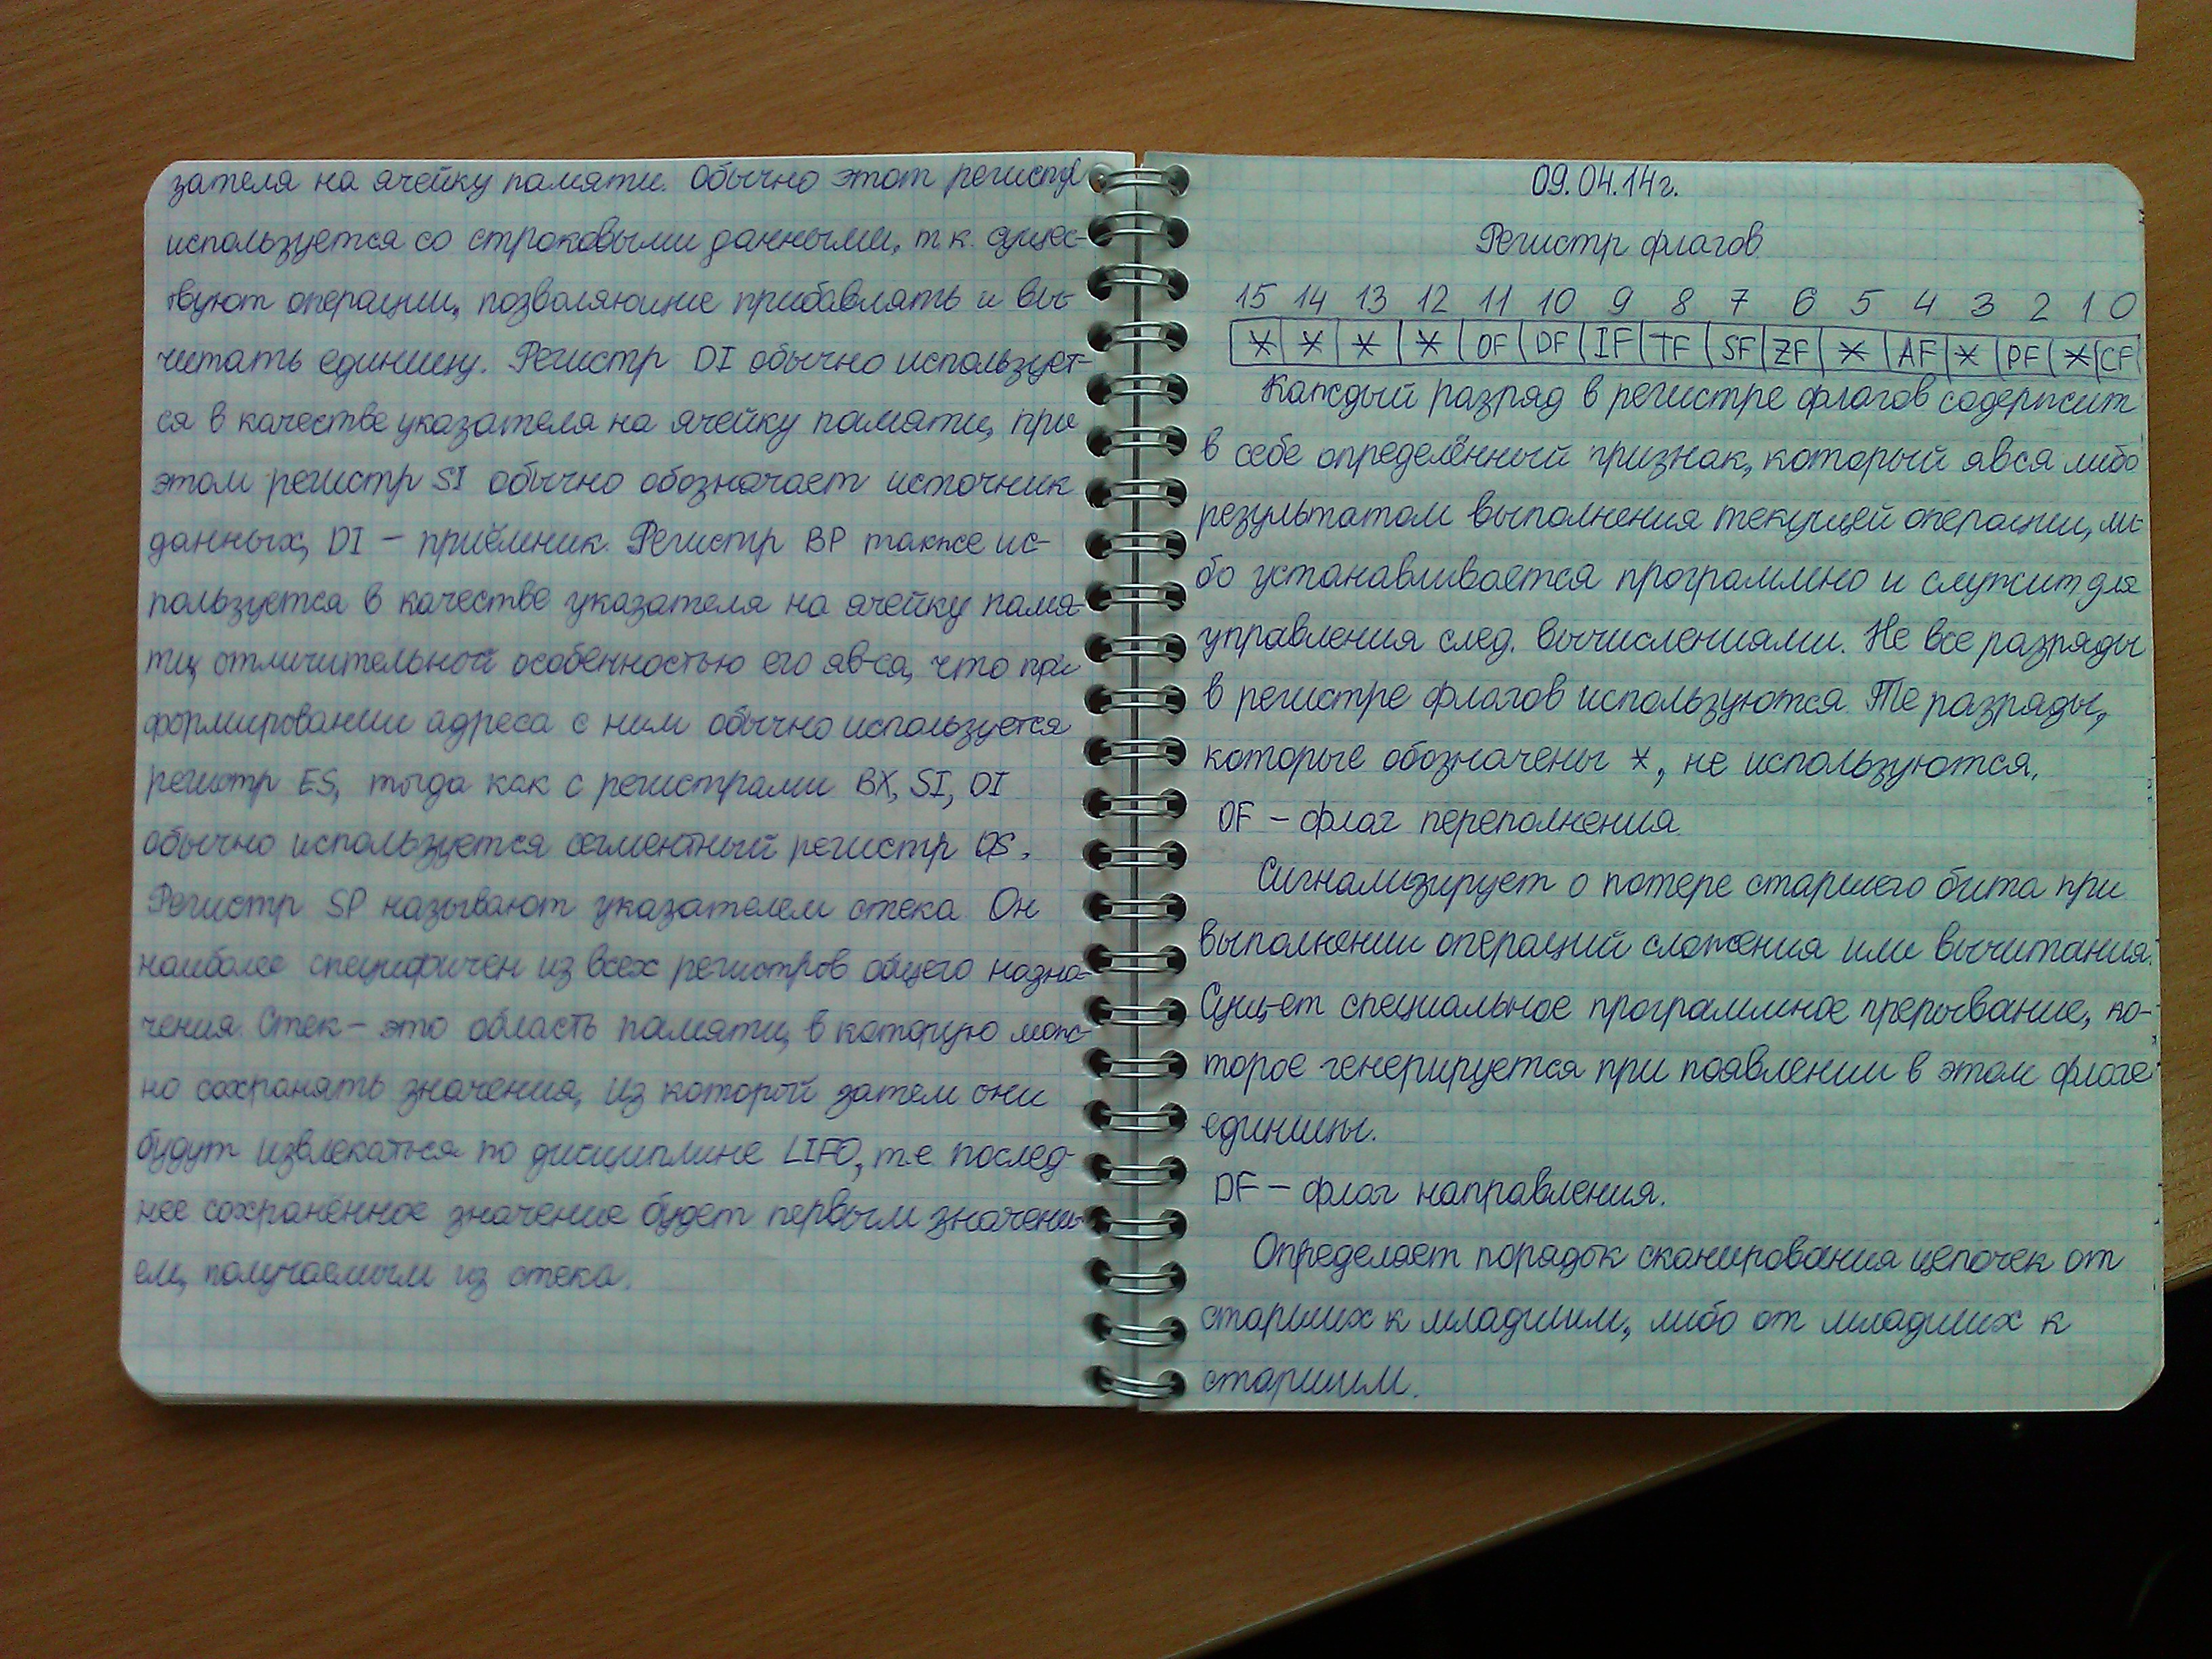 зателя на ячейку памяти. Обычно этот регистр
используется со строковыми данными, т.к. сущес-
твуют операции, позволяющие прибавлять и вы-
читать единицу. Регистр DI обычно использует-
ся в качестве указателя на ячейку памяти, при
этом регистр SI обычно обозначает источник
данных, DI – приёмник. Регистр BP также ис-
пользуется в качестве указателя на ячейку памя-
ти, отличительной особенностью его яв-ся, что при
формировании адреса с ним обычно используется
регистр ES, тогда как с регистрами BX, SI, DI
обычно используется сегментный регистр DS.
Регистр SP называют указателем стека. Он
наиболее специфичен из всех регистров общего назна-
чения. Стек – это область памяти, в которую мож-
но сохранять значения, из которой затем они
будут извлекаться по дисциплине LIFO, т.е. послед-
нее сохранённое значение будет первым значени-
ем, получаемым из стека.
09.04.14г.
Регистр флагов
15 14 13 12 11 10 9 8 7 6 5 4 3 2 1 0
* * * * OF DF IF TF SF ZF * AF * PF * CF
Каждый разряд в регистре флагов содержит
в себе определённый признак, который явся либо
результатом выполнения текущей операции, ли-
бо устанавливается программно и служит для
управления след. вычислениями. Не все разряды
в регистре флагов используются. Те разряды,
которые обозначены *, не используются.
OF – флаг переполнения.
Сигнализирует о потере старшего бита при
выполнении операций сложения или вычитания.
Сущ-ет специальное программное прерывание, ко-
торое генерируется при появлении в этом флаге
единицы.
DF – флаг направления.
Определяет порядок сканирования цепочек от
старших к младшим, либо от младших к
старшим.